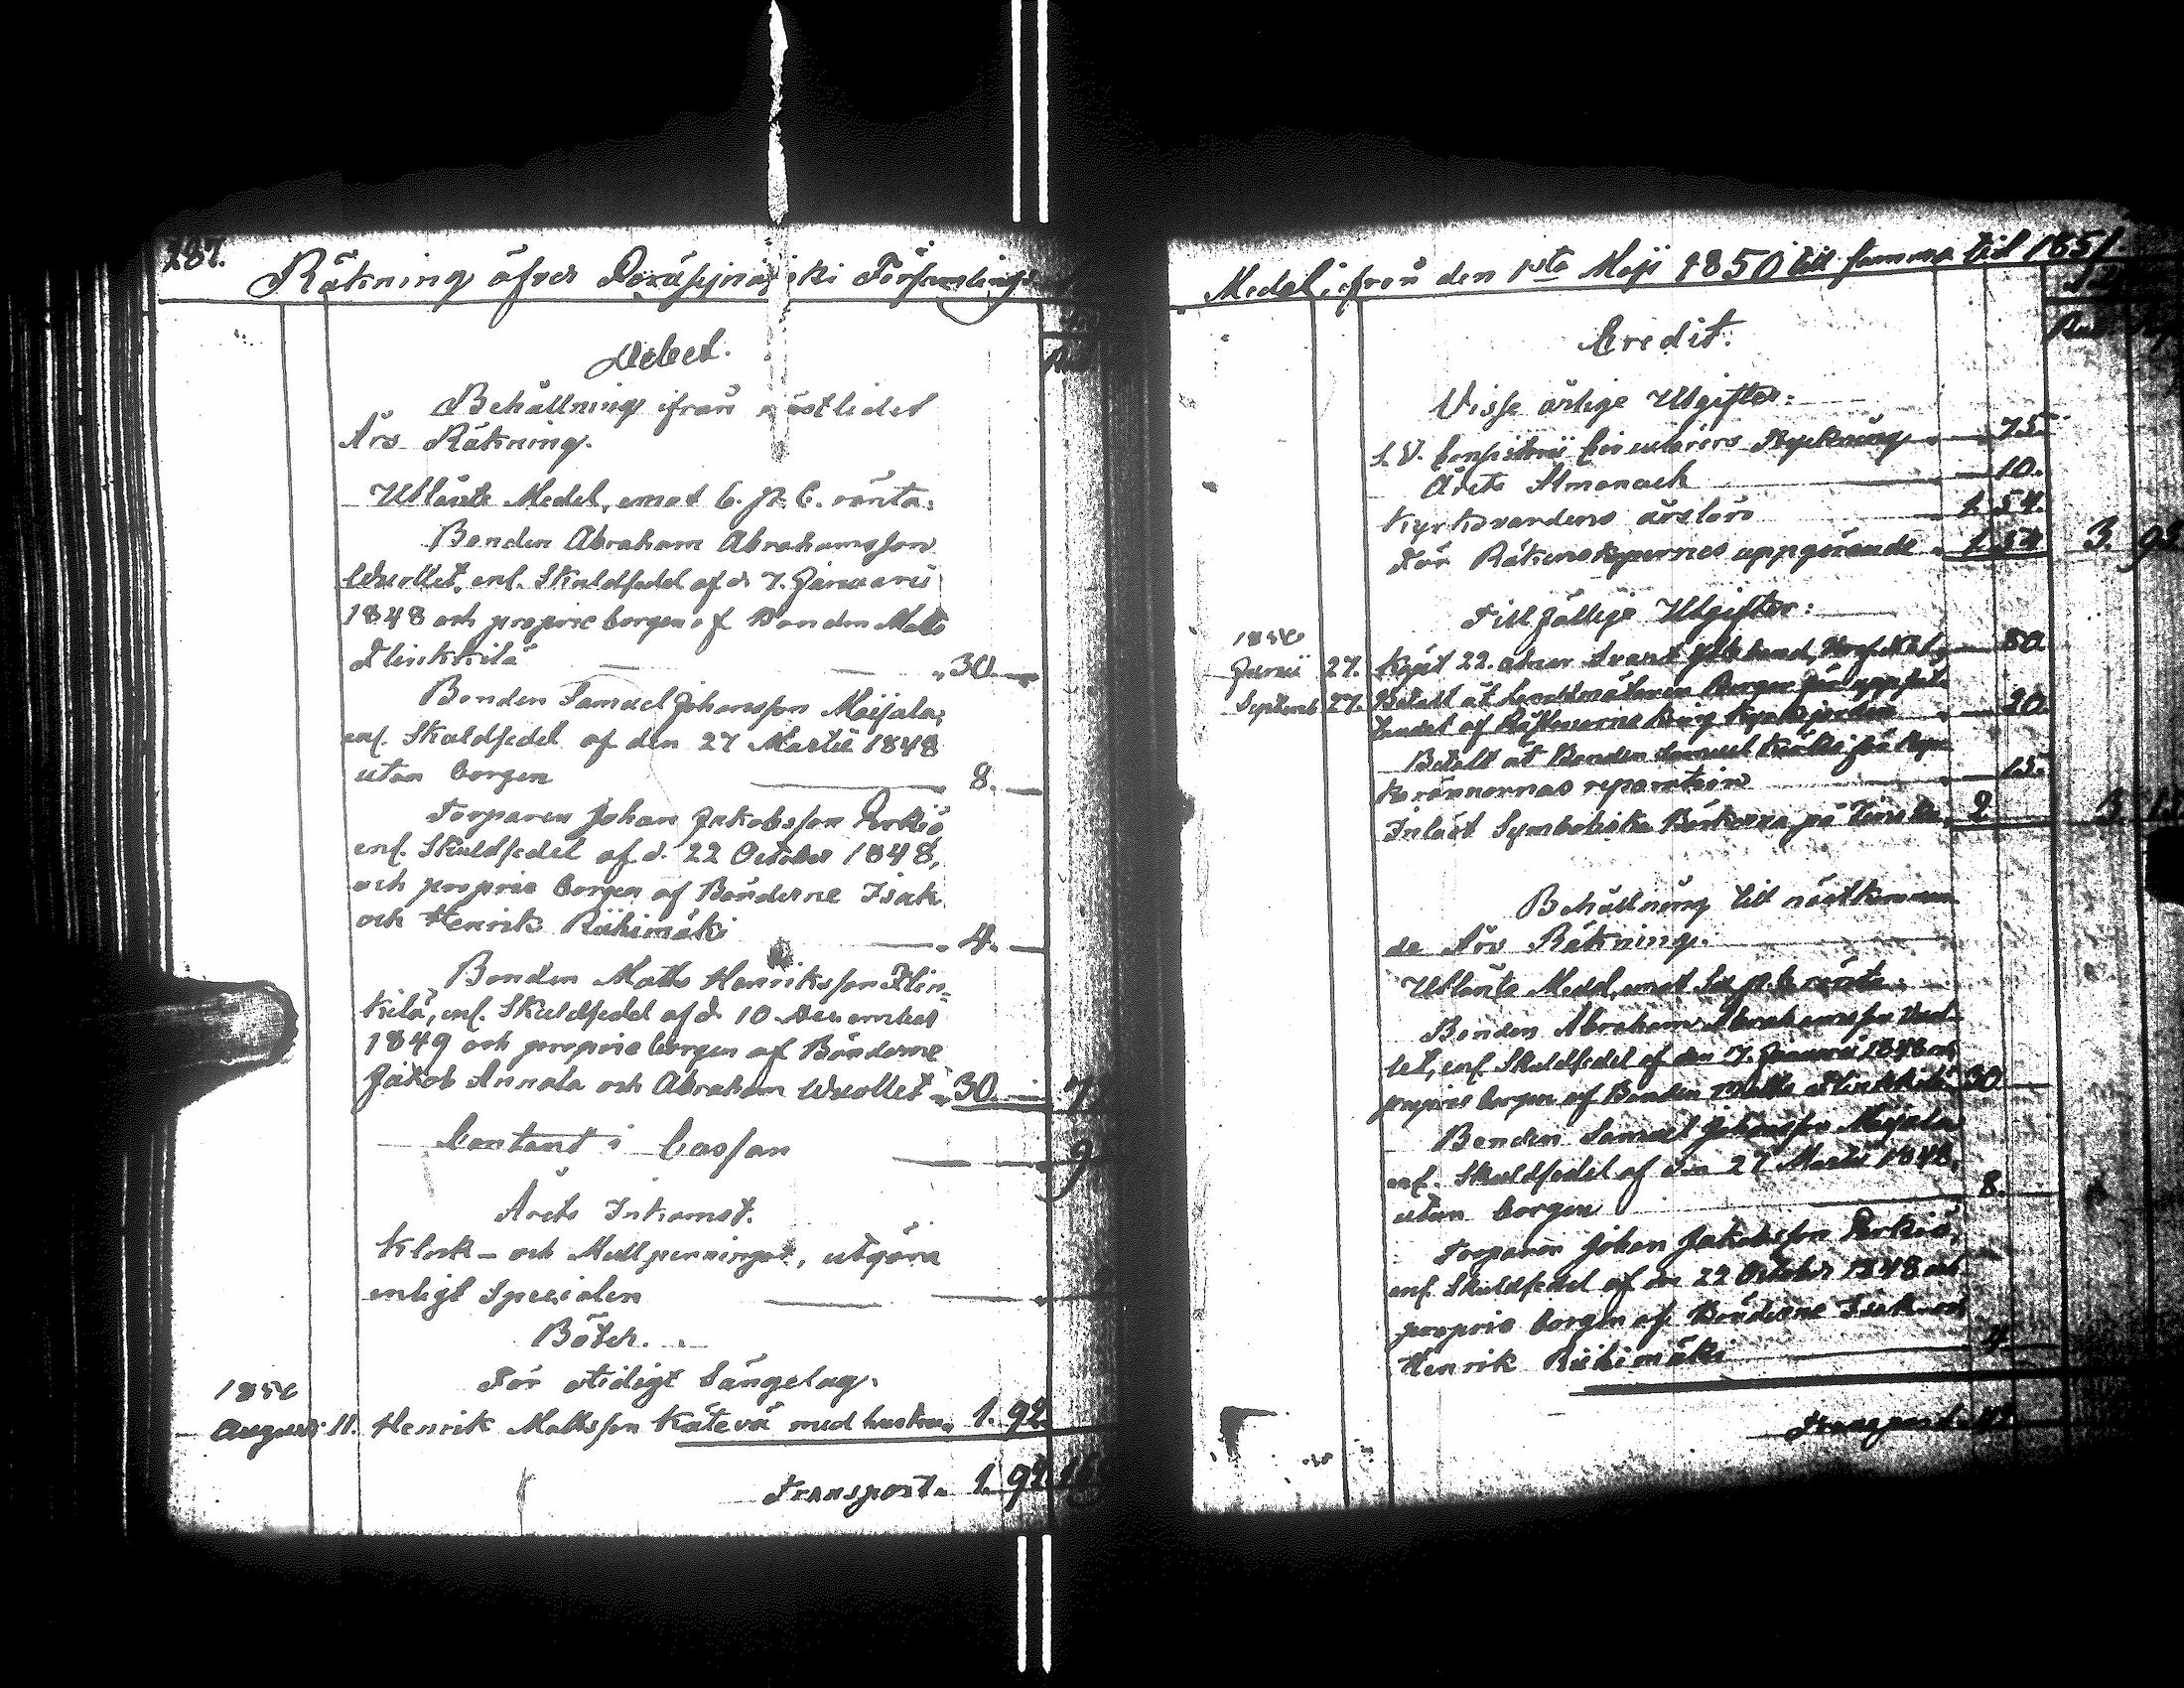 287.
Räkning öfver Peräseinäjoki Församlings
Debet.
Behållning ifrån nästledet
Års Räkning.
Utlånte Medel, emot 6. pr C. ränta:
Bonden Abraham Abrahamsson
Wuollet, enl. Skuldsedel af d. 7. Januarii
1848 och proprie borgen af Bonden Matts
Flinkkilä " 30. —
Bonden Samuel Johansson Maijala,
enl. Skuldsedel af den 27 Martii 1848
utan borgen 8. —
Torparen Johan Jakobsson Porkio
enl. Skuldsedel af d. 22 October 1848,
och proprie borgen af Bönderne Isak
och Henrik Riihimäki " 4. —
Bonden Matts Henriksson Flin-
kilä, enl. Skuldsedel af d. 10 December
1849 och proprie borgen af Bönderne
Jakob Annala och Abraham Wuollet " 30. — 7
Contant i Cassan 9
Årets Inkomst.
Klock- och Mullpenningar, utgöra
enligt Specialen
Böter.
För otidigt Sängelag.
1850
Augusti 11. Henrik Mattsson Kätevä med hustru " 1. 92.
Transport. 1. 92
Medel ifrån den 1sta Maji 1850 till samma tid 1851
Credit.
Visse årlige Utgifter:
s. V. Consistorii Circulärers Tryckning " — 75.
Årets Almanach — 10.
Kyrkovardens årslön 1. 54.
För Räkenskapernes uppgörande " 1. 54 3. 93
Tillfällige Utgifter:
1850
Junii 27. Köpt 22. alnar Svart — 80
Septemb. 27. Betalt åt Landtmätaren Berger för uppsät-
tandet af Råstenarne kring Kyrkojorden " — 20.
Betalt åt Bonden Samuel för Kyr-
korännornas reparation — 15.
Inlöst Symboliska Böckerna på Finska " 2 3.
Behållning till nästkomman-
de Års Räkning.
Utlånte Medel, emot Sex pr C ränta:
Bonden Abraham Abrahamsson Wuol-
let, enl. Skuldsedel af den 7. Januarii 1848 och
proprie borgen af Bonden Matts Flinkkilä 30 —
Bonden Samuel Johansson Maijala
enl. Skuldsedel af den 27 Martii 1848,
utan borgen 8.
Torparen Johan Jakobsson Porkio,
enl. Skuldsedel af den 22 October 1848 och
proprie borgen af Bönderne Isak och
Henrik Riihimäki 4.
Transport. 42